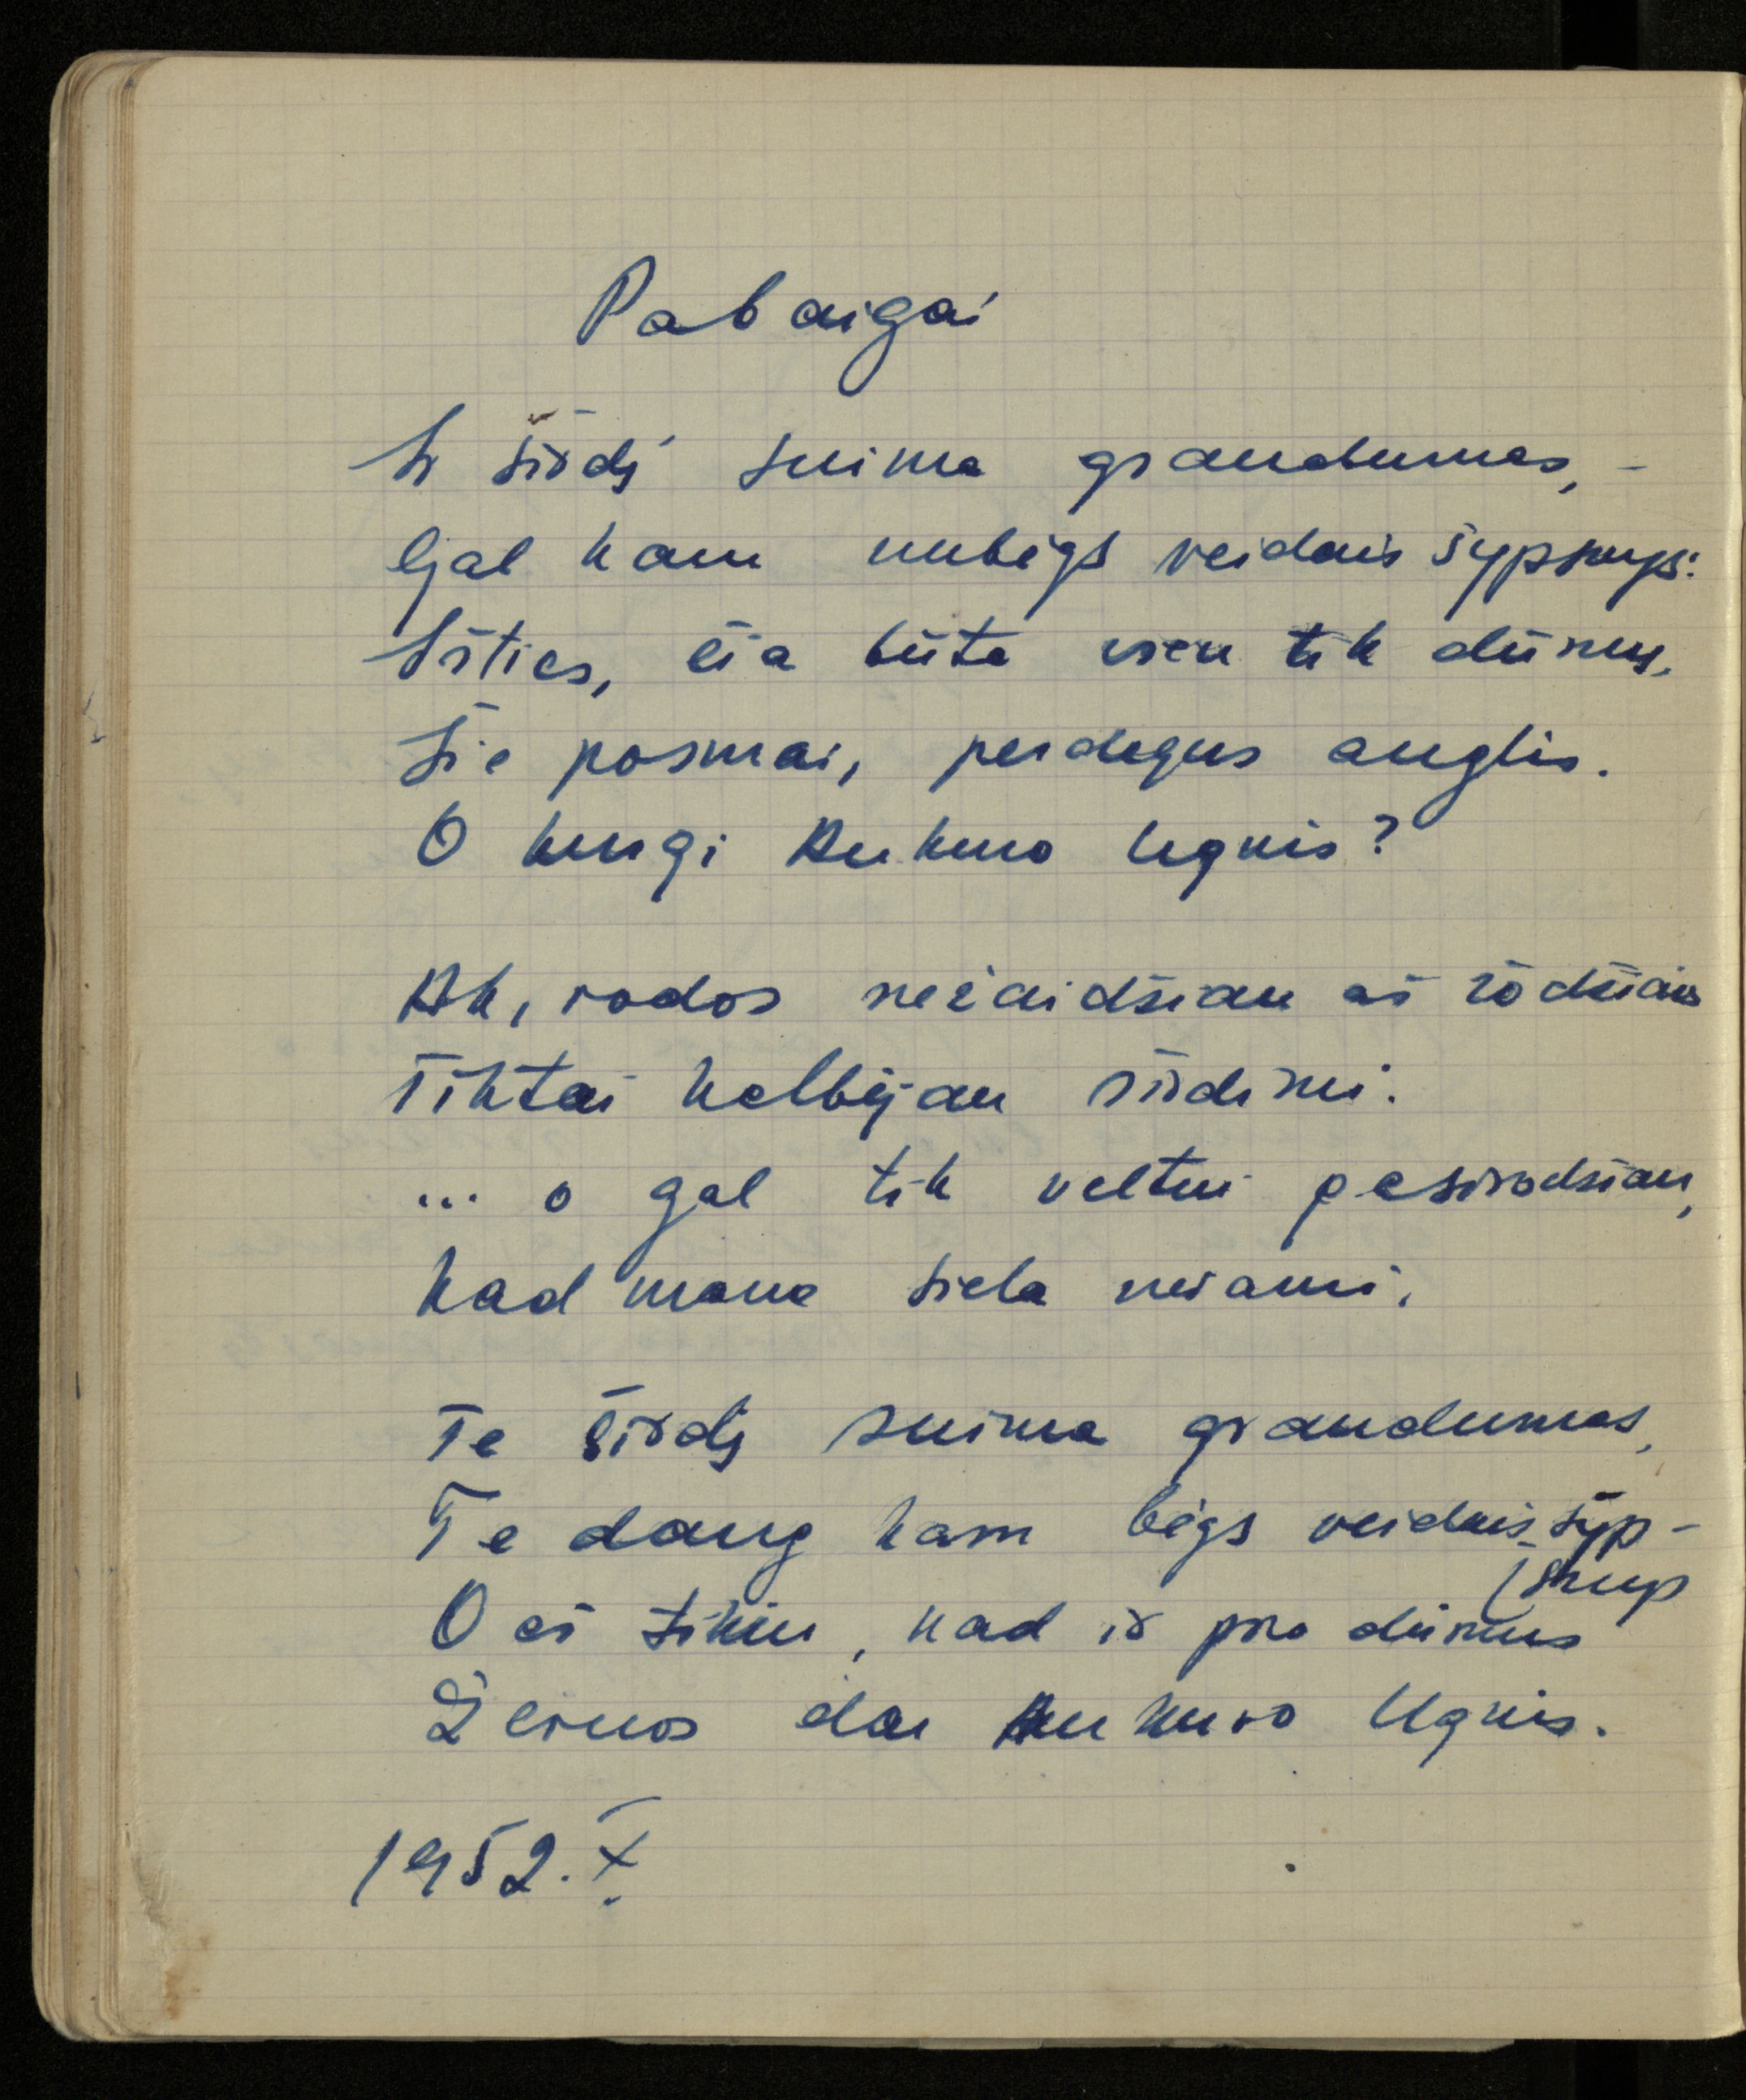 Pabaigai
Ir širdį suima graudumas, -
Gal kam nubėgs veidais šypsnys:
Išties, čia būta vien tik dūmų,
Šie posmai, perdegus anglis.
O kurgi Aukuro Ugnis?
Ak, rodos nežaidžiau aš žodžiais
Tiktai kalbėjau širdimi.
... o gal tik veltui pasirodžiau,
Kad mano siela nerami.
Te širdį suima graudumas,
Te daug kam bėgs veidais šyp-
(snys
O aš tikiu, kad ir pro dūmus
Žėruos dar Aukuro Ugnis.
1952.X.